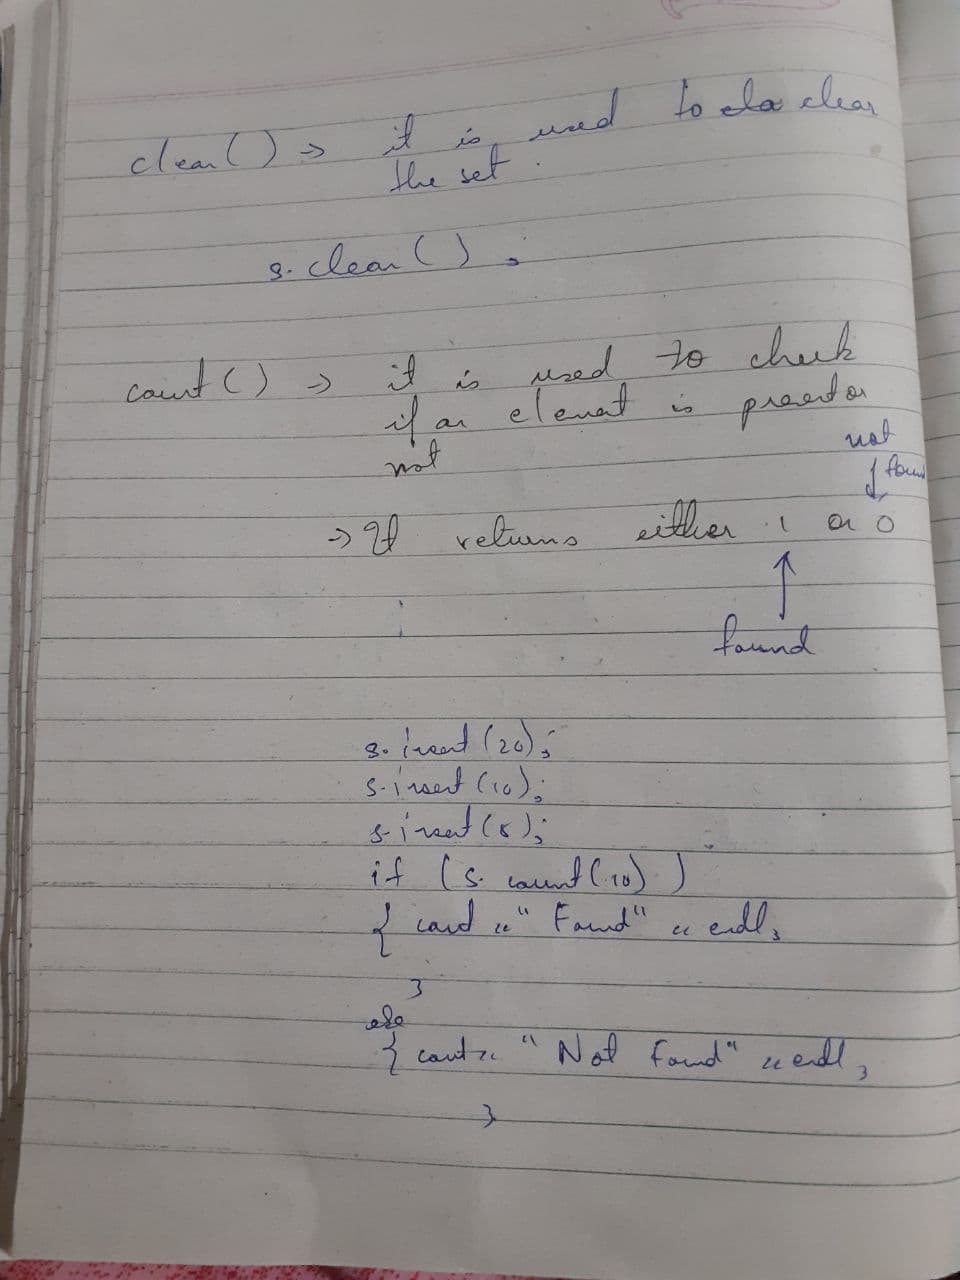 clear() → it is used to clear
the set.
s.clear();
count() → it is used to check
if an element is present or
not
not
found
→ It returns either 1 or 0
found
s.insert(20);
s.insert(10);
s.insert(5);
if (s.count(10))
{ cout << "Found" << endl;
}
else
{ cout << "Not Found" << endl;
}